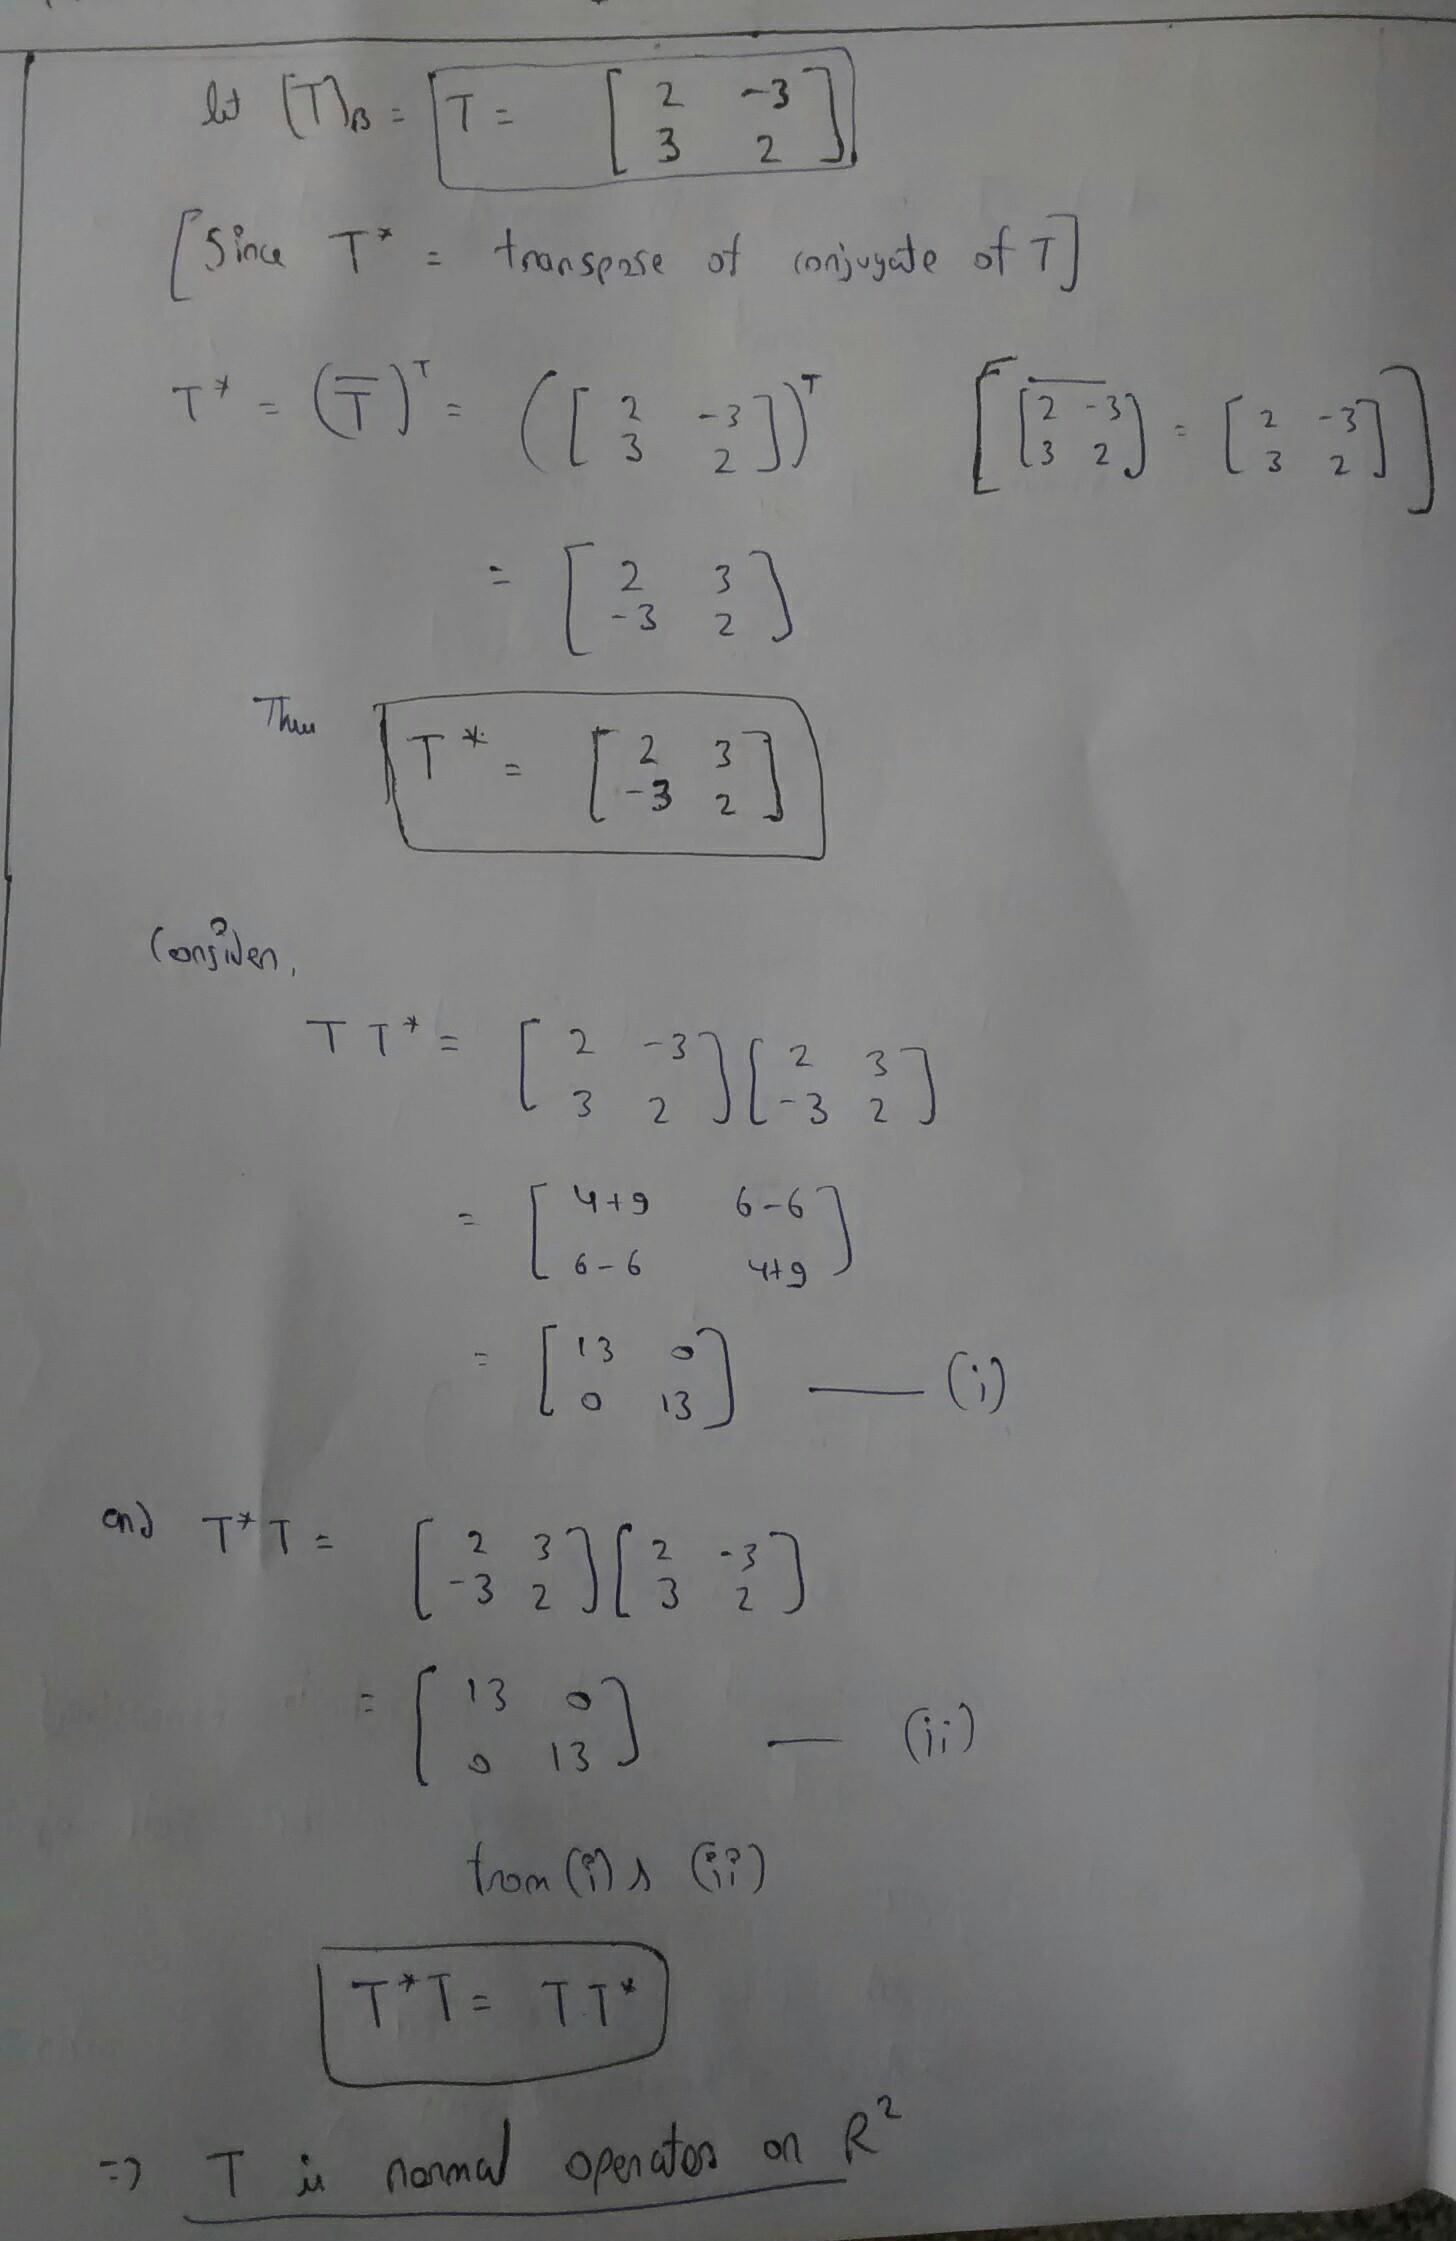 let [T]B = T = [ 2 -3
3 2 ]
[Since T* = transpose of conjugate of T]
T* = (T̅)ᵀ = ([ 2 -3 ])ᵀ [ [2 -3] = [ 2 -3 ] ]
3 2 3 2 3 2
= [ 2 3
-3 2 ]
Thus T* = [ 2 3
-3 2 ]
Consider,
T T* = [ 2 -3 ] [ 2 3 ]
3 2 -3 2
= [ 4+9 6-6
6-6 4+9 ]
= [ 13 0
0 13 ] —— (i)
and T* T = [ 2 3 ] [ 2 -3 ]
-3 2 3 2
= [ 13 0
0 13 ] — (ii)
from (i) & (ii)
T*T = TT*
=> T is normal operator on R²